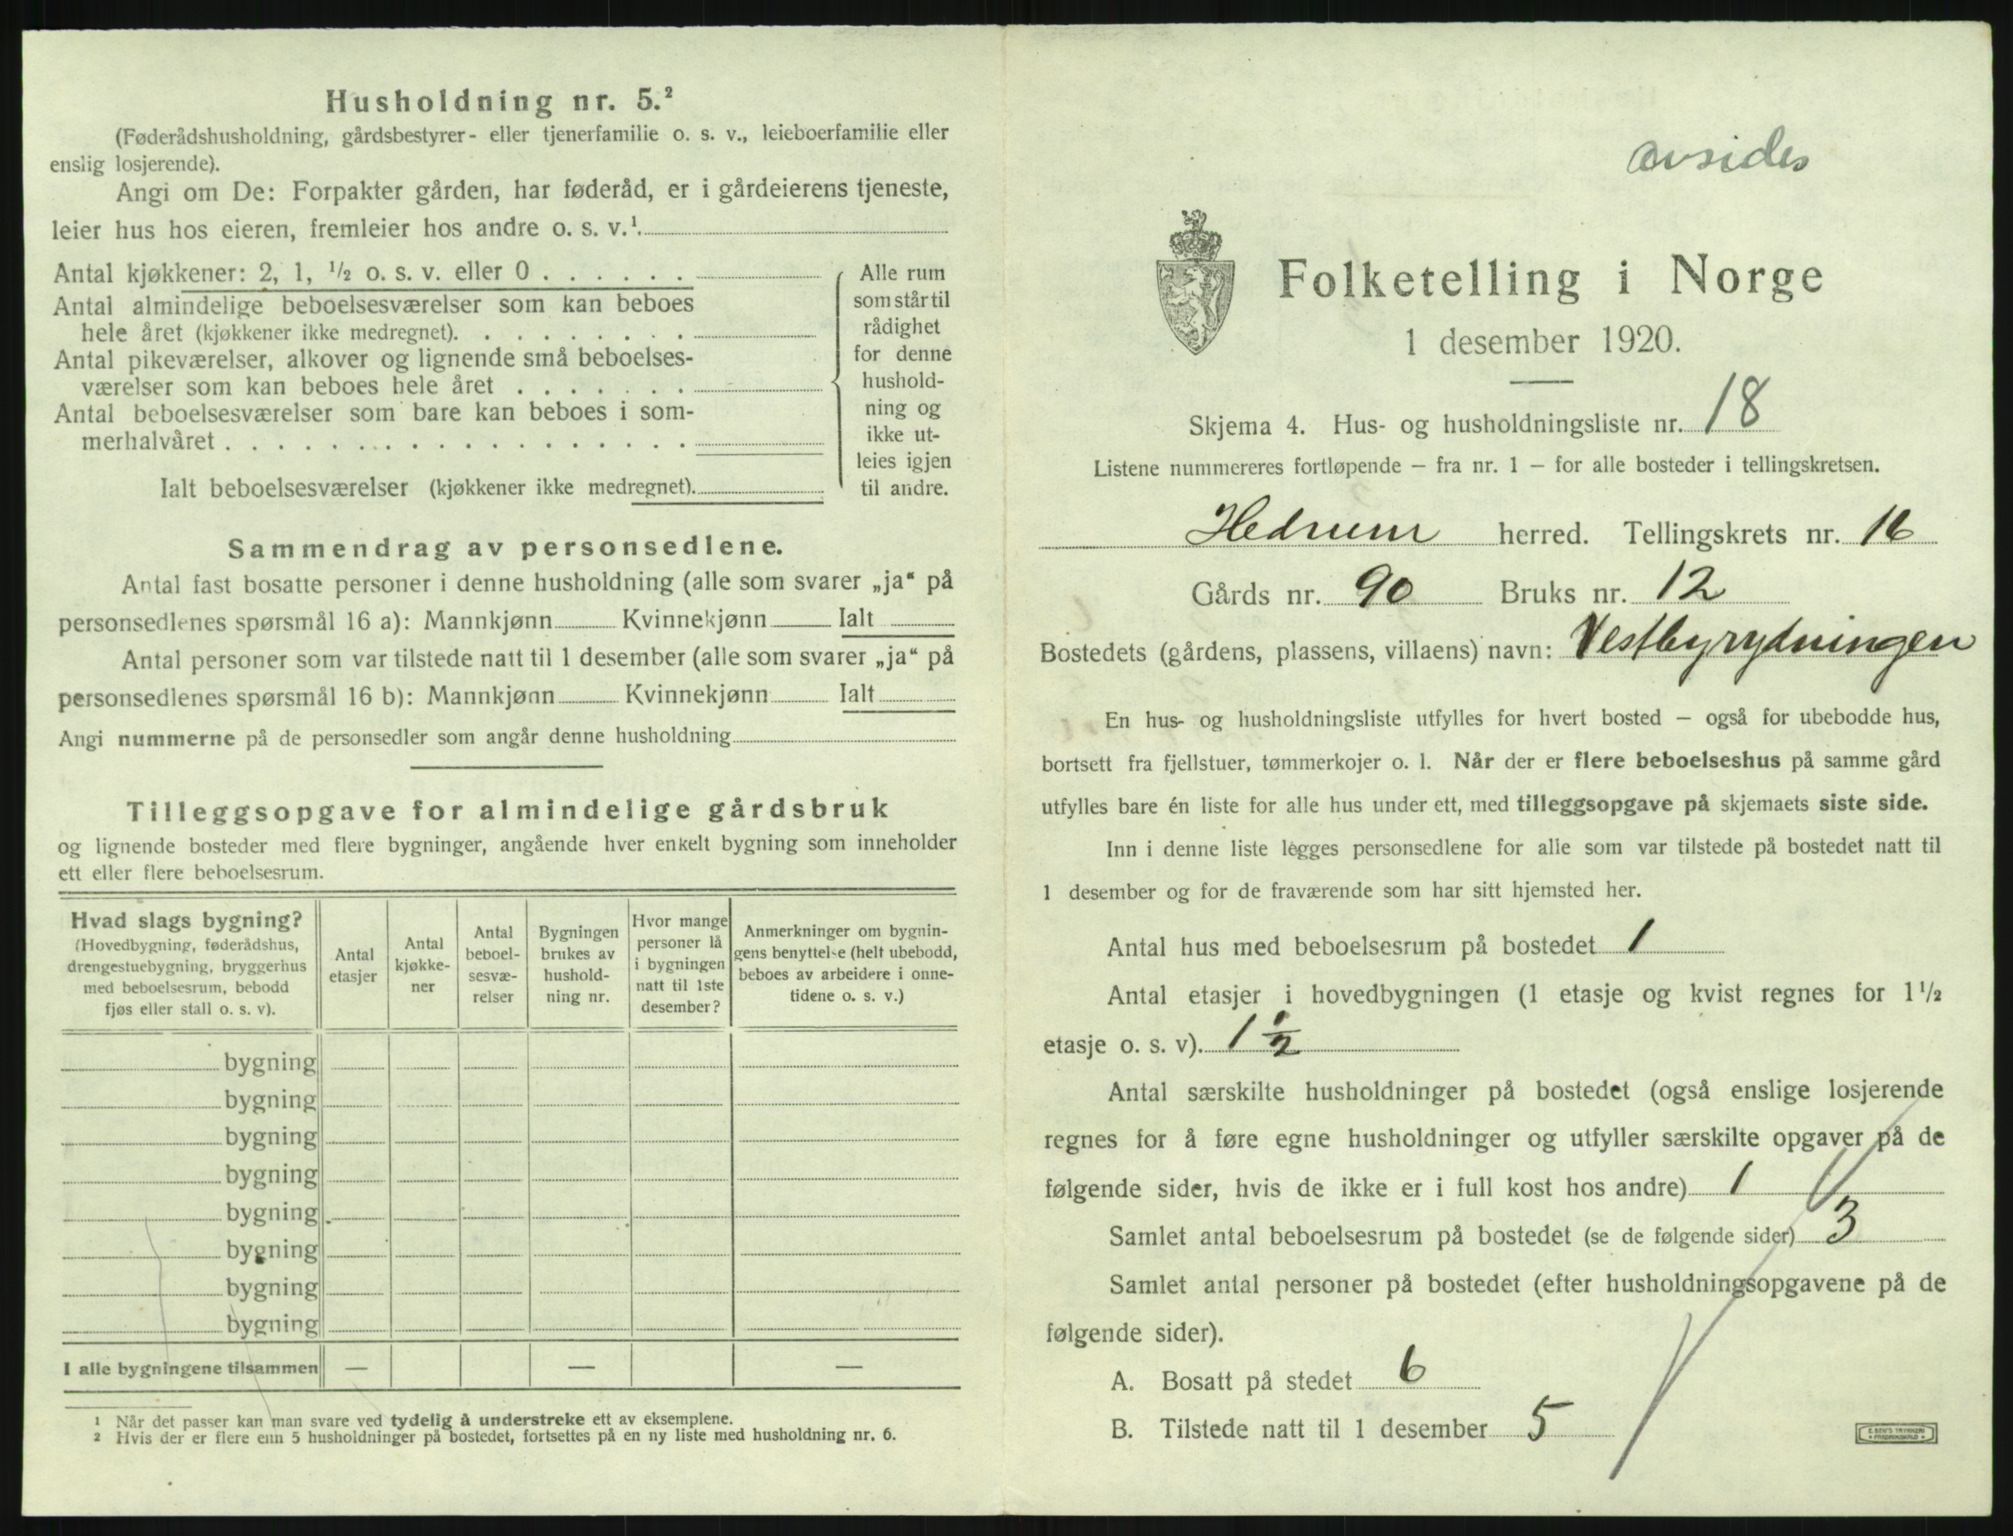 Husholdning nr. 5.²
(Føderådshusholdning, gårdsbestyrer- eller tjenerfamilie o. s. v., leieboerfamilie eller
enslig losjerende).
Angi om De: Forpakter gården, har føderåd, er i gårdeierens tjeneste,
leier hus hos eieren, fremleier hos andre o. s. v.¹
Antal kjøkkener: 2, 1, ¹/₂ o. s. v. eller 0 . . . . . .
Antal almindelige beboelsesværelser som kan beboes
hele året (kjøkkener ikke medregnet). . . . . . . . .
Antal pikeværelser, alkover og lignende små beboelses-
værelser som kan beboes hele året . . . . . . .
Antal beboelsesværelser som bare kan beboes i som-
merhalvåret . . . . . . . . . . . . . . . . . .
Ialt beboelsesværelser (kjøkkener ikke medregnet).
Alle rum
som står til
rådighet
for denne
hushold-
ning og
ikke ut-
leies igjen
til andre.
Sammendrag av personsedlene.
Antal fast bosatte personer i denne husholdning (alle som svarer „ja“ på
personsedlenes spørsmål 16 a): Mannkjønn Kvinnekjønn Ialt
Antal personer som var tilstede natt til 1 desember (alle som svarer „ja“ på
personsedlenes spørsmål 16 b): Mannkjønn Kvinnekjønn Ialt
Angi nummerne på de personsedler som angår denne husholdning
Tilleggsopgave for almindelige gårdsbruk
og lignende bosteder med flere bygninger, angående hver enkelt bygning som inneholder
ett eller flere beboelsesrum.
Hvad slags bygning?
(Hovedbygning, føderådshus,
drengestuebygning, bryggerhus
med beboelsesrum, bebodd
fjøs eller stall o. s. v).
Antal
etasjer
Antal
kjøkke-
ner
Antal
beboel-
sesvæ-
relser
Bygningen
brukes av
hushold-
ning nr.
Hvor mange
personer lå
i bygningen
natt til 1ste
desember?
Anmerkninger om bygnin-
gens benyttelse (helt ubebodd,
beboes av arbeidere i onne-
tidene o. s. v.)
bygning
bygning
bygning
bygning
bygning
bygning
bygning
bygning
I alle bygningene tilsammen — — —
¹ Når det passer kan man svare ved tydelig å understreke ett av eksemplene.
² Hvis der er flere enn 5 husholdninger på bostedet, fortsettes på en ny liste med husholdning nr. 6.
avsides
Folketelling i Norge
1 desember 1920.
Skjema 4. Hus- og husholdningsliste nr. 18
Listene nummereres fortløpende — fra nr. 1 — for alle bosteder i tellingskretsen.
Hedrum herred. Tellingskrets nr. 16
Gårds nr. 90 Bruks nr. 12
Bostedets (gårdens, plassens, villaens) navn: Vestbyrydningen
En hus- og husholdningsliste utfylles for hvert bosted — også for ubebodde hus,
bortsett fra fjellstuer, tømmerkojer o. l. Når der er flere beboelseshus på samme gård
utfylles bare én liste for alle hus under ett, med tilleggsopgave på skjemaets siste side.
Inn i denne liste legges personsedlene for alle som var tilstede på bostedet natt til
1 desember og for de fraværende som har sitt hjemsted her.
Antal hus med beboelsesrum på bostedet 1
Antal etasjer i hovedbygningen (1 etasje og kvist regnes for 1¹/₂
etasje o. s. v). 1 ½
Antal særskilte husholdninger på bostedet (også enslige losjerende
regnes for å føre egne husholdninger og utfyller særskilte opgaver på de
følgende sider, hvis de ikke er i full kost hos andre) 1
Samlet antal beboelsesrum på bostedet (se de følgende sider) 3
Samlet antal personer på bostedet (efter husholdningsopgavene på de
følgende sider).
A. Bosatt på stedet 6
B. Tilstede natt til 1 desember 5